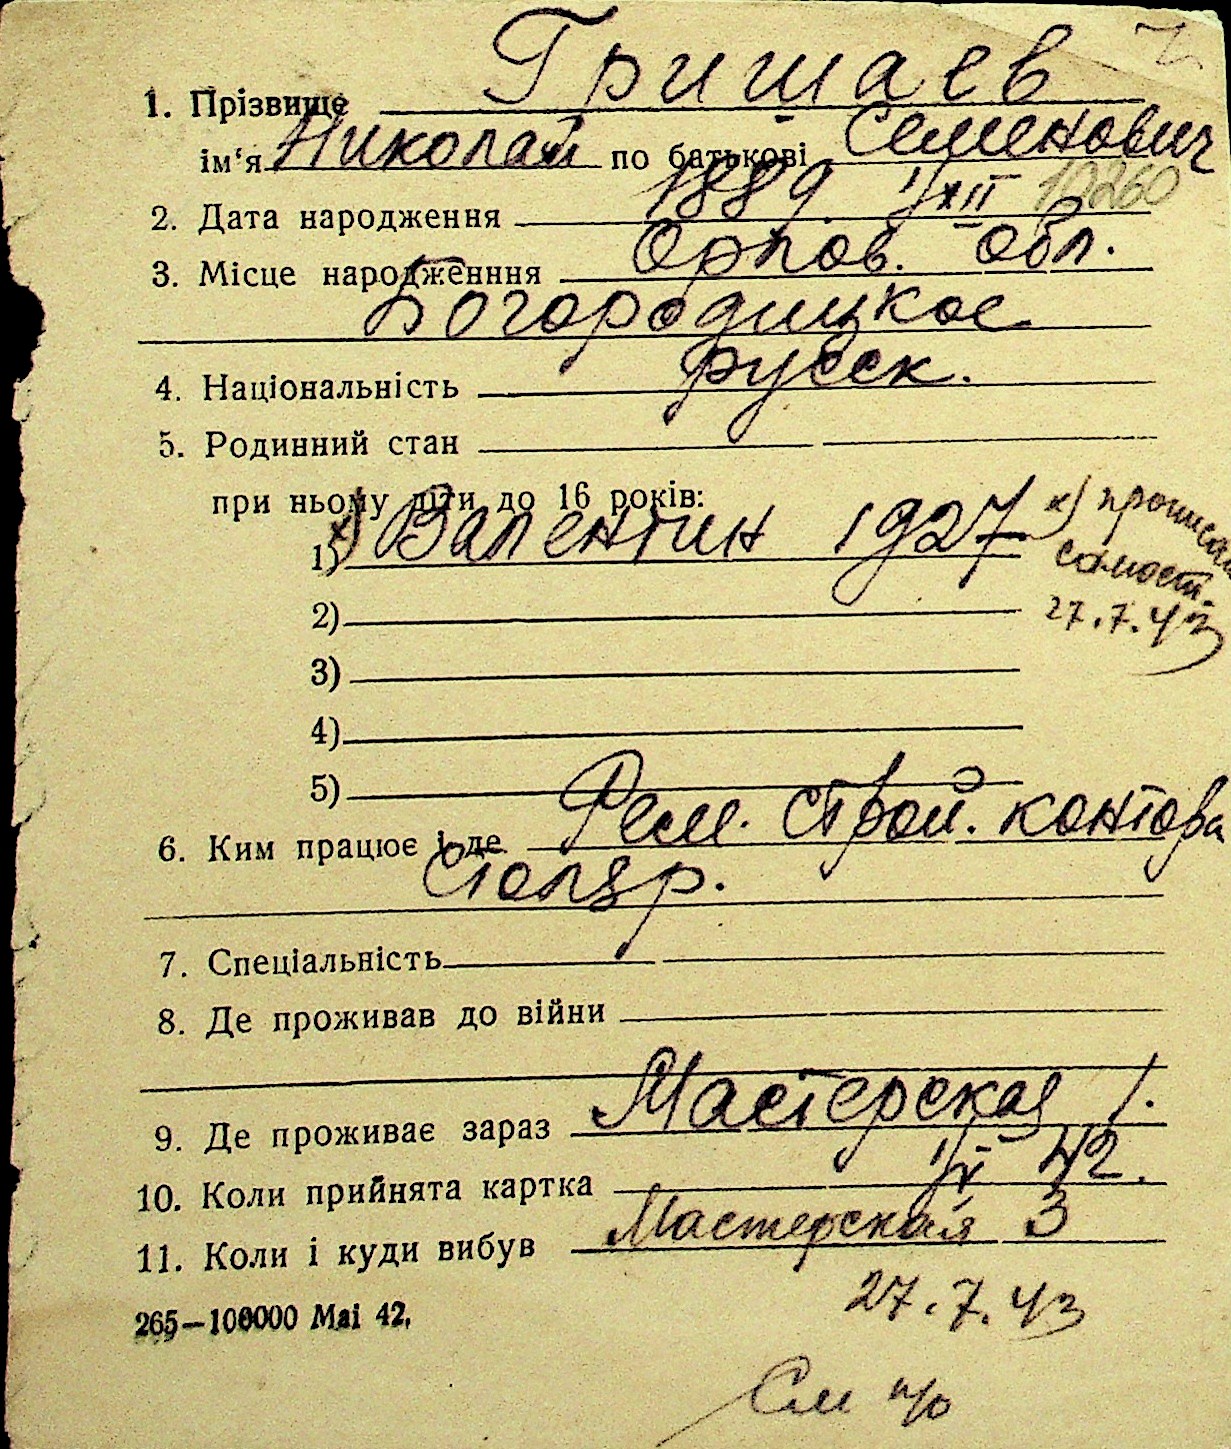 1. Прізвище Гришаев
ім'я Николай по батькові Семенович
2. Дата народження 1889. 1/XII 10260
3. Місце народженння Орлов. Обл.
Богородицкое
4. Національність русск.
5. Родинний стан
при ньому діти до 16 років:
1) х) Валентин 1927 х) прописан
самост.
27.7.43
2)
3)
4)
5)
6. Ким працює і де Рем. Строй. контора
Столяр.
7. Спеціальність
8. Де проживав до війни
9. Де проживає зараз Мастерская 1.
10. Коли прийнята картка 1/V 42.
11. Коли і куди вибув Мастерская 3
27.7.43
265—100000 Mai 42.
См н/о